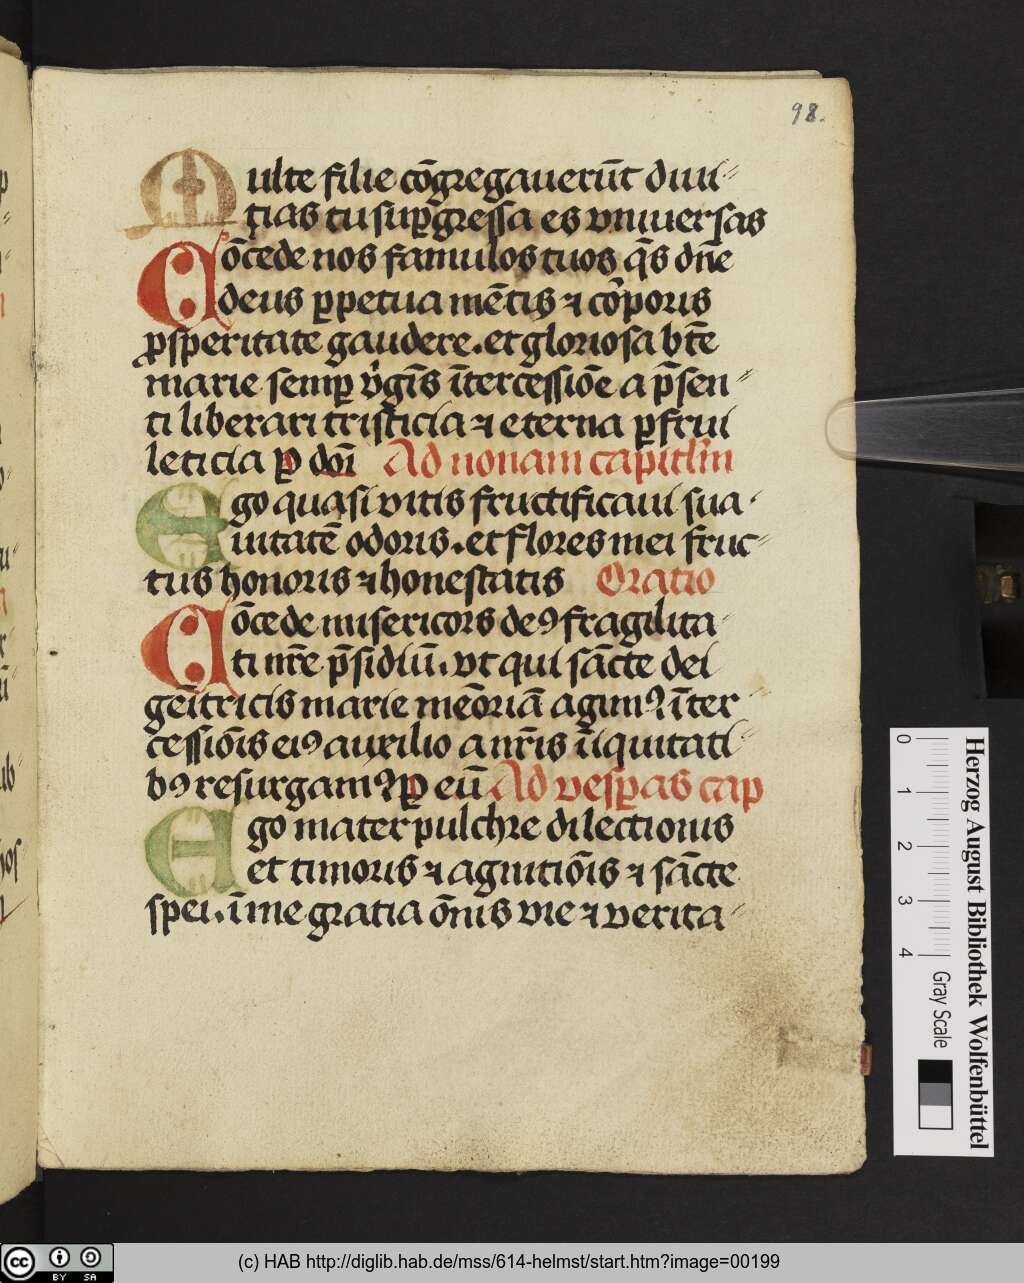 98.
Multe filie cōgregauerūt diui⸗
tias tu suꝑgressa es vniuersas
Cōcede nos famulos tuos q̄s dn̄e
deus ꝑpetua mētis ⁊ cōꝛporis
ꝓsperitate gaudere. et gloriosa bt̄e
marie semꝑ v̓gīs īter cessiōe a p̄sen⸗
ti liberari tristicia ⁊ eterna ꝑfrui
leticia ꝑ doī Ad nonam capitl̄m
Ego quasi vitis fructificaui sua
uitatē odoris. et flores mei fruc⸗
tus honoris ⁊ honestatis Oratio
Cōcede misericors deꝰ fragilita⸗
ti nr̄e p̄sidiū. vt qui sācte dei
geītricis marie meōriā agimꝰ īter
cessiōis eiꝰ auxilio a nr̄is īiquitati⸗
bꝰ resurgamꝰ ꝑ eū Ad vesꝑas cap
Ego mater pulchre dilectionis
et timoris ⁊ agnitiōis ⁊ sācte
spei. ī me gratia ōnis vie ⁊ verita⸗
Herzog August Bibliothek Wolfenbüttel
0 1 2 3 4 Gray Scale
cc BY SA
(c) HAB http://diglib.hab.de/mss/614-helmst/start.htm?image=00199